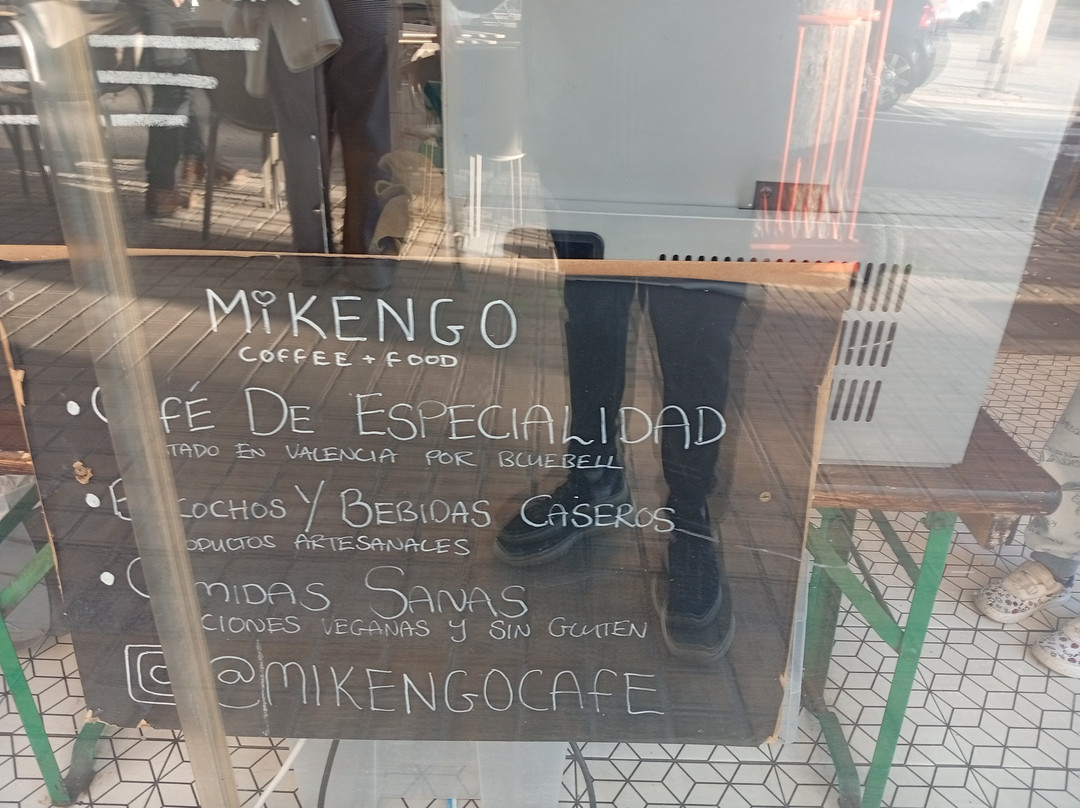 MiKENGO
COFFEE + FOOD
• CAFÉ DE ESPECIALIDAD
TADO EN VALENCIA POR BLUEBELL
• BIZCOCHOS Y BEBIDAS CASEROS
PRODUCTOS ARTESANALES
• COMIDAS SANAS
OPCIONES VEGANAS Y SIN GLUTEN
@MIKENGOCAFE